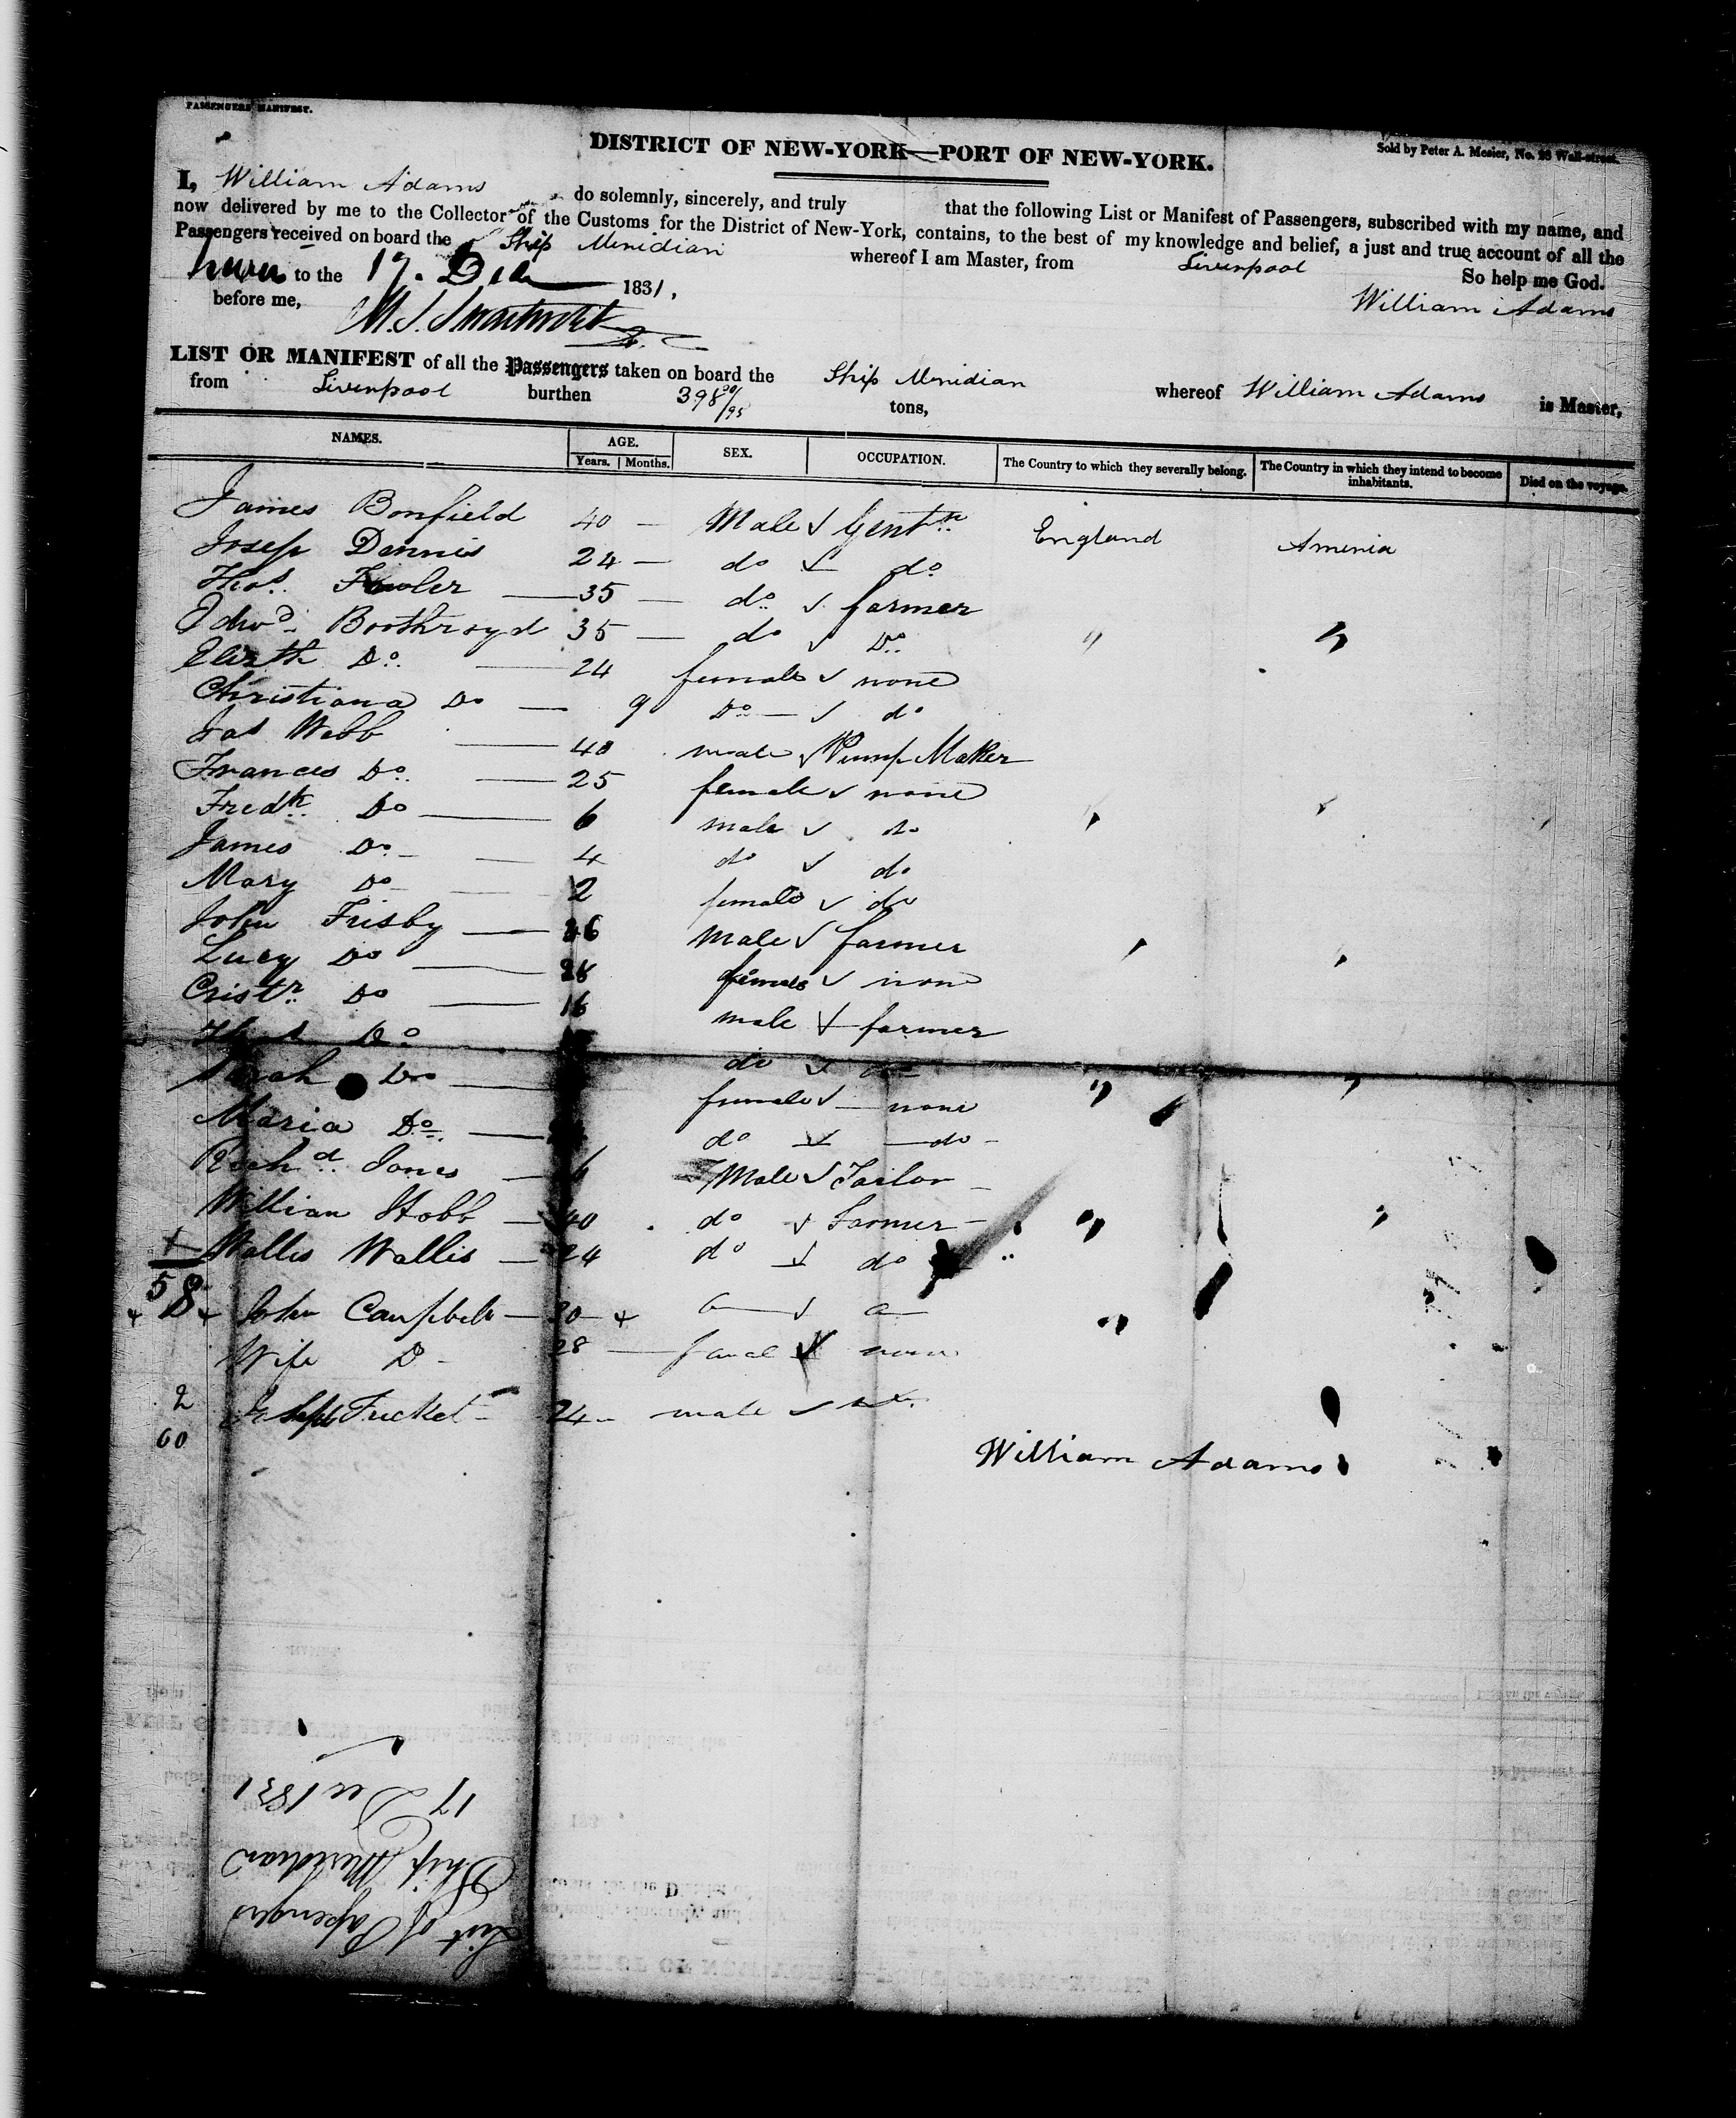 PASSENGERS MANIFEST.
Sold by Peter A. Mesier, No. 28 Wall-street.
DISTRICT OF NEW-YORK—PORT OF NEW-YORK.
I, William Adams do solemnly, sincerely, and truly that the following List or Manifest of Passengers, subscribed with my name, and
now delivered by me to the Collector of the Customs for the District of New-York, contains, to the best of my knowledge and belief, a just and true account of all the
Passengers received on board the Ship Meridian whereof I am Master, from Liverpool
So help me God.
to the 17. Dec 1831,
before me,
William Adams
LIST OR MANIFEST of all the Passengers taken on board the Ship Meridian whereof William Adams is Master,
from Liverpool burthen 398 /95 tons,
NAMES. AGE. SEX. OCCUPATION. The Country to which they severally belong. The Country in which they intend to become inhabitants. Died on the voyage.
Years. Months.
James Bonfield 40 — Male Gentn England America
Josep Dennis 24 — do do
Thos. Fowler — 35 — do farmer
Edwd Boothroyd 35 — do Do " "
Elizth Do — 24 female none
Christiana Do — 9 Do — do
Jas Webb — 40 male Pump Maker
Frances Do — 25 female none
Fredk. Do — 6 male do " "
James Do — 4 do do
Mary Do — 2 female do
John Frisby — 46 Male farmer " "
Lucy Do — female none
Cristr. Do — 16 male farmer
Do do do
Sarah Do — female — none " "
Maria Do — do — do —
Richd. Jones — Male Tailor —
William Stobb — 40 do Farmer — " "
Wallis Wallis — 24 do do
58
John Campbell — 30 "
Wife D — 28 — none
2 Tricket — 24 — male
60
William Adams
List of Passengers
Ship Meridian
17 Dec 1831